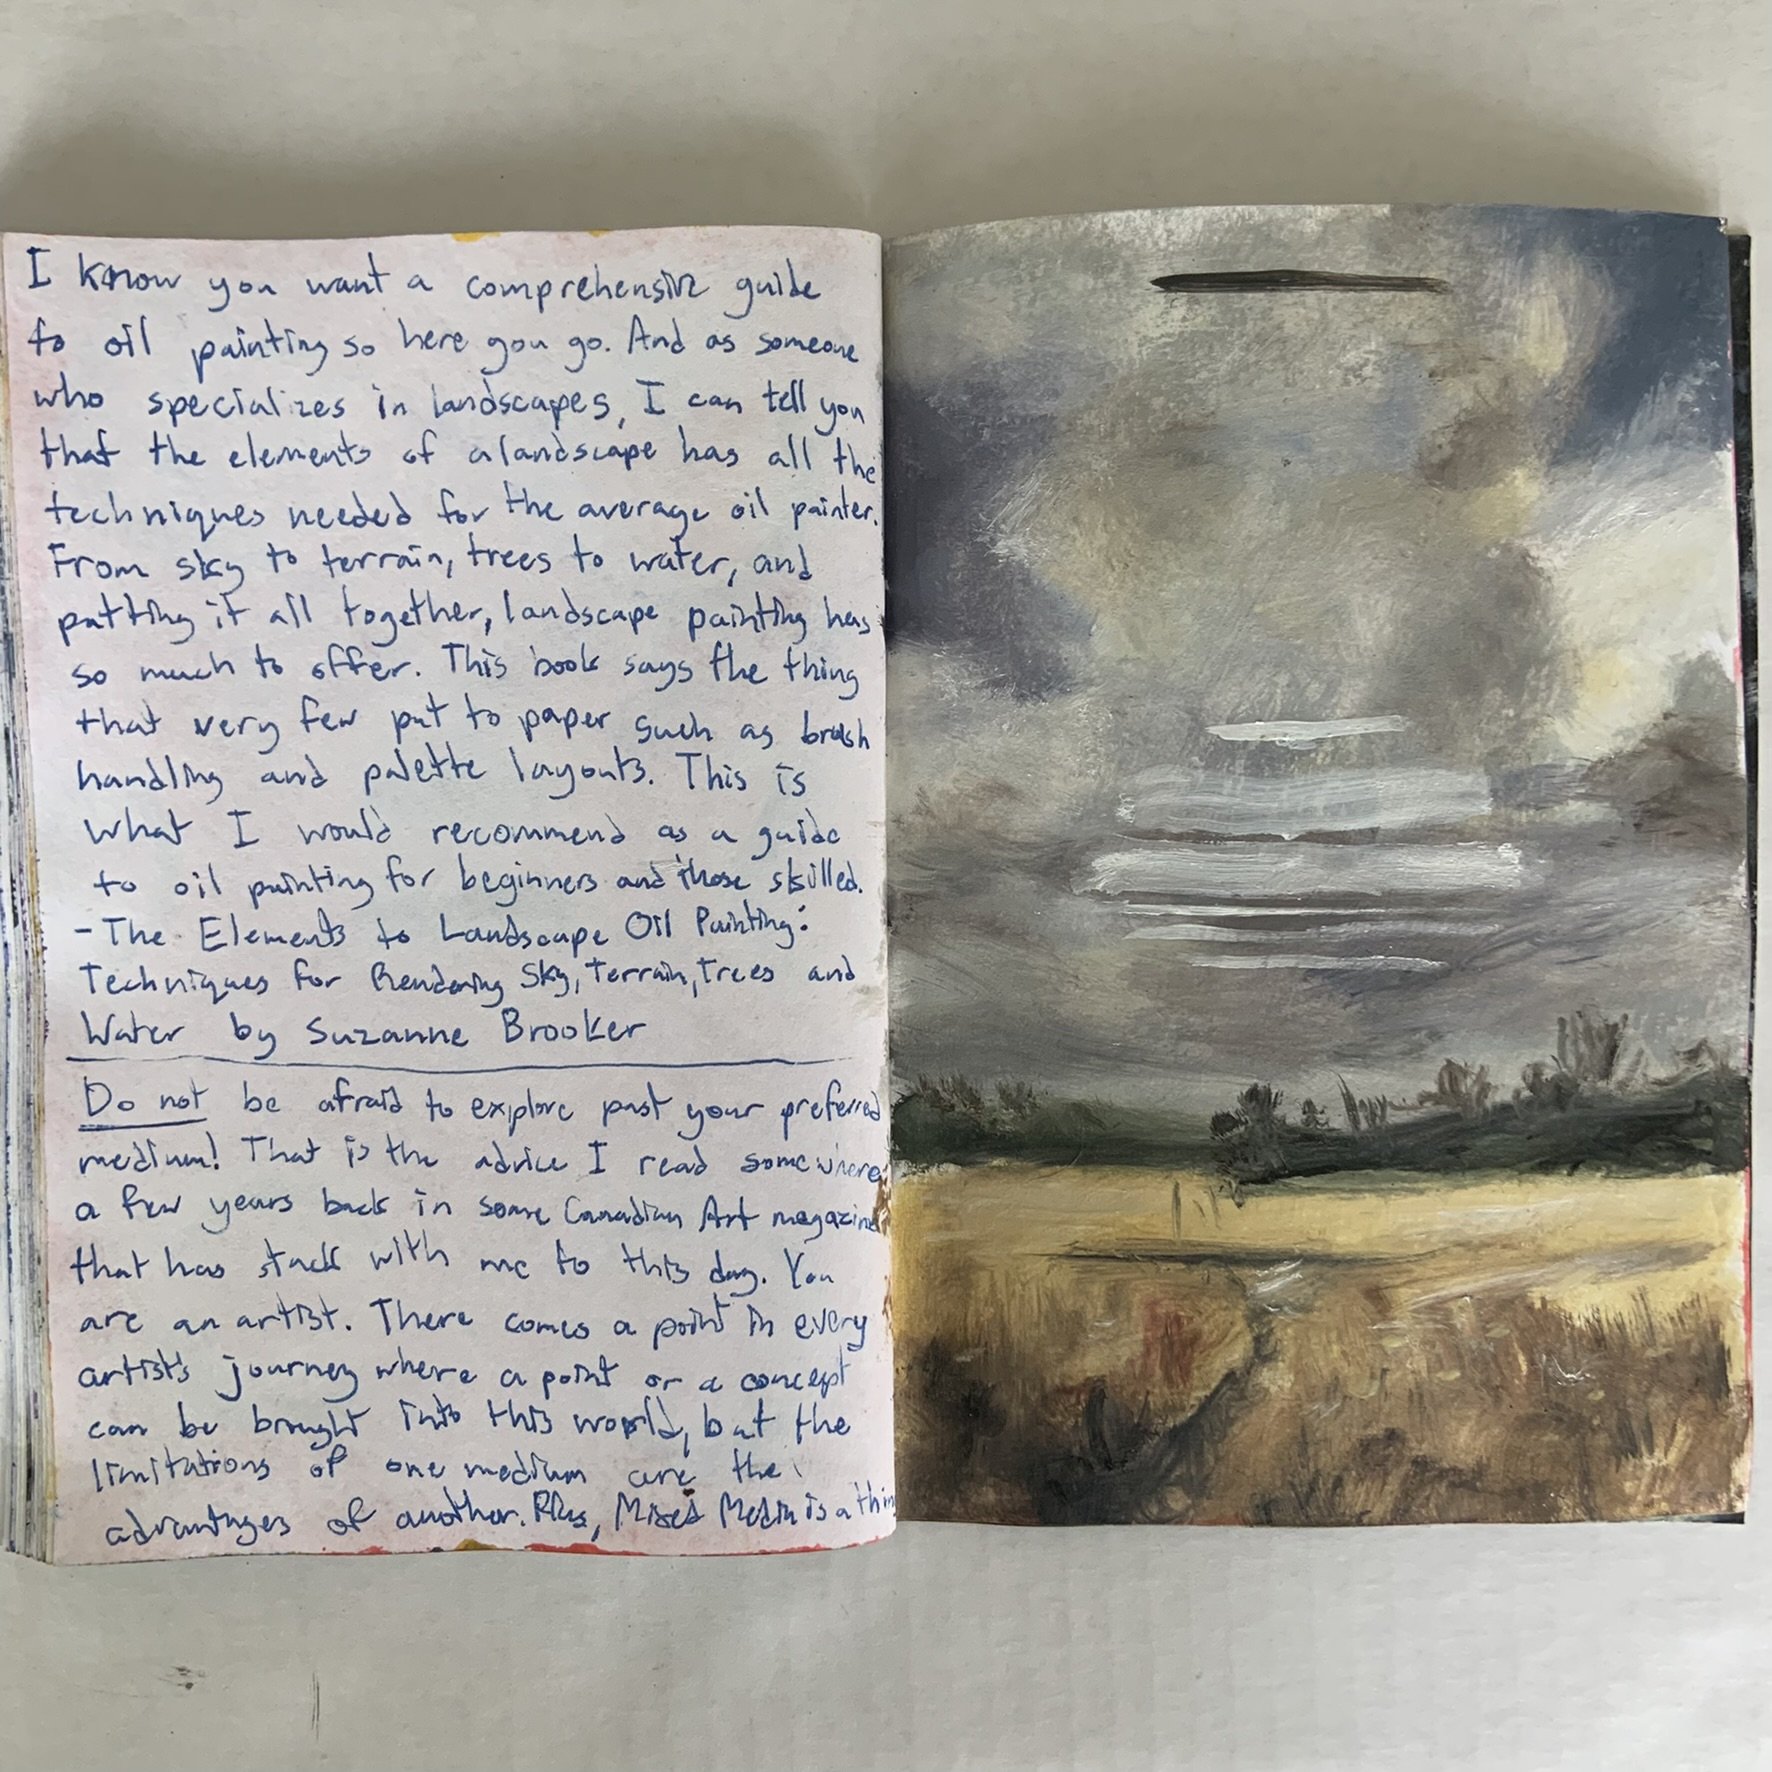 I know you want a comprehensive guide
to oil painting so here you go. And as someone
who specializes in landscapes, I can tell you
that the elements of a landscape has all the
techniques needed for the average oil painter.
From sky to terrain, trees to water, and
putting it all together, landscape painting has
so much to offer. This book says the thing
that very few put to paper such as brush
handling and palette layouts. This is
what I would recommend as a guide
to oil painting for beginners and those skilled.
- The Elements to Landscape Oil Painting:
Techniques for Rendering Sky, Terrain, Trees and
Water by Suzanne Brooker
Do not be afraid to explore past your preferred
medium! That is the advice I read somewhere
a few years back in some Canadian Art magazine
that has stuck with me to this day. You
are an artist. There comes a point in every
artist's journey where a point or a concept
can be brought into this world, but the
limitations of one medium are the
advantages of another. Plus, Mixed Media is a thin